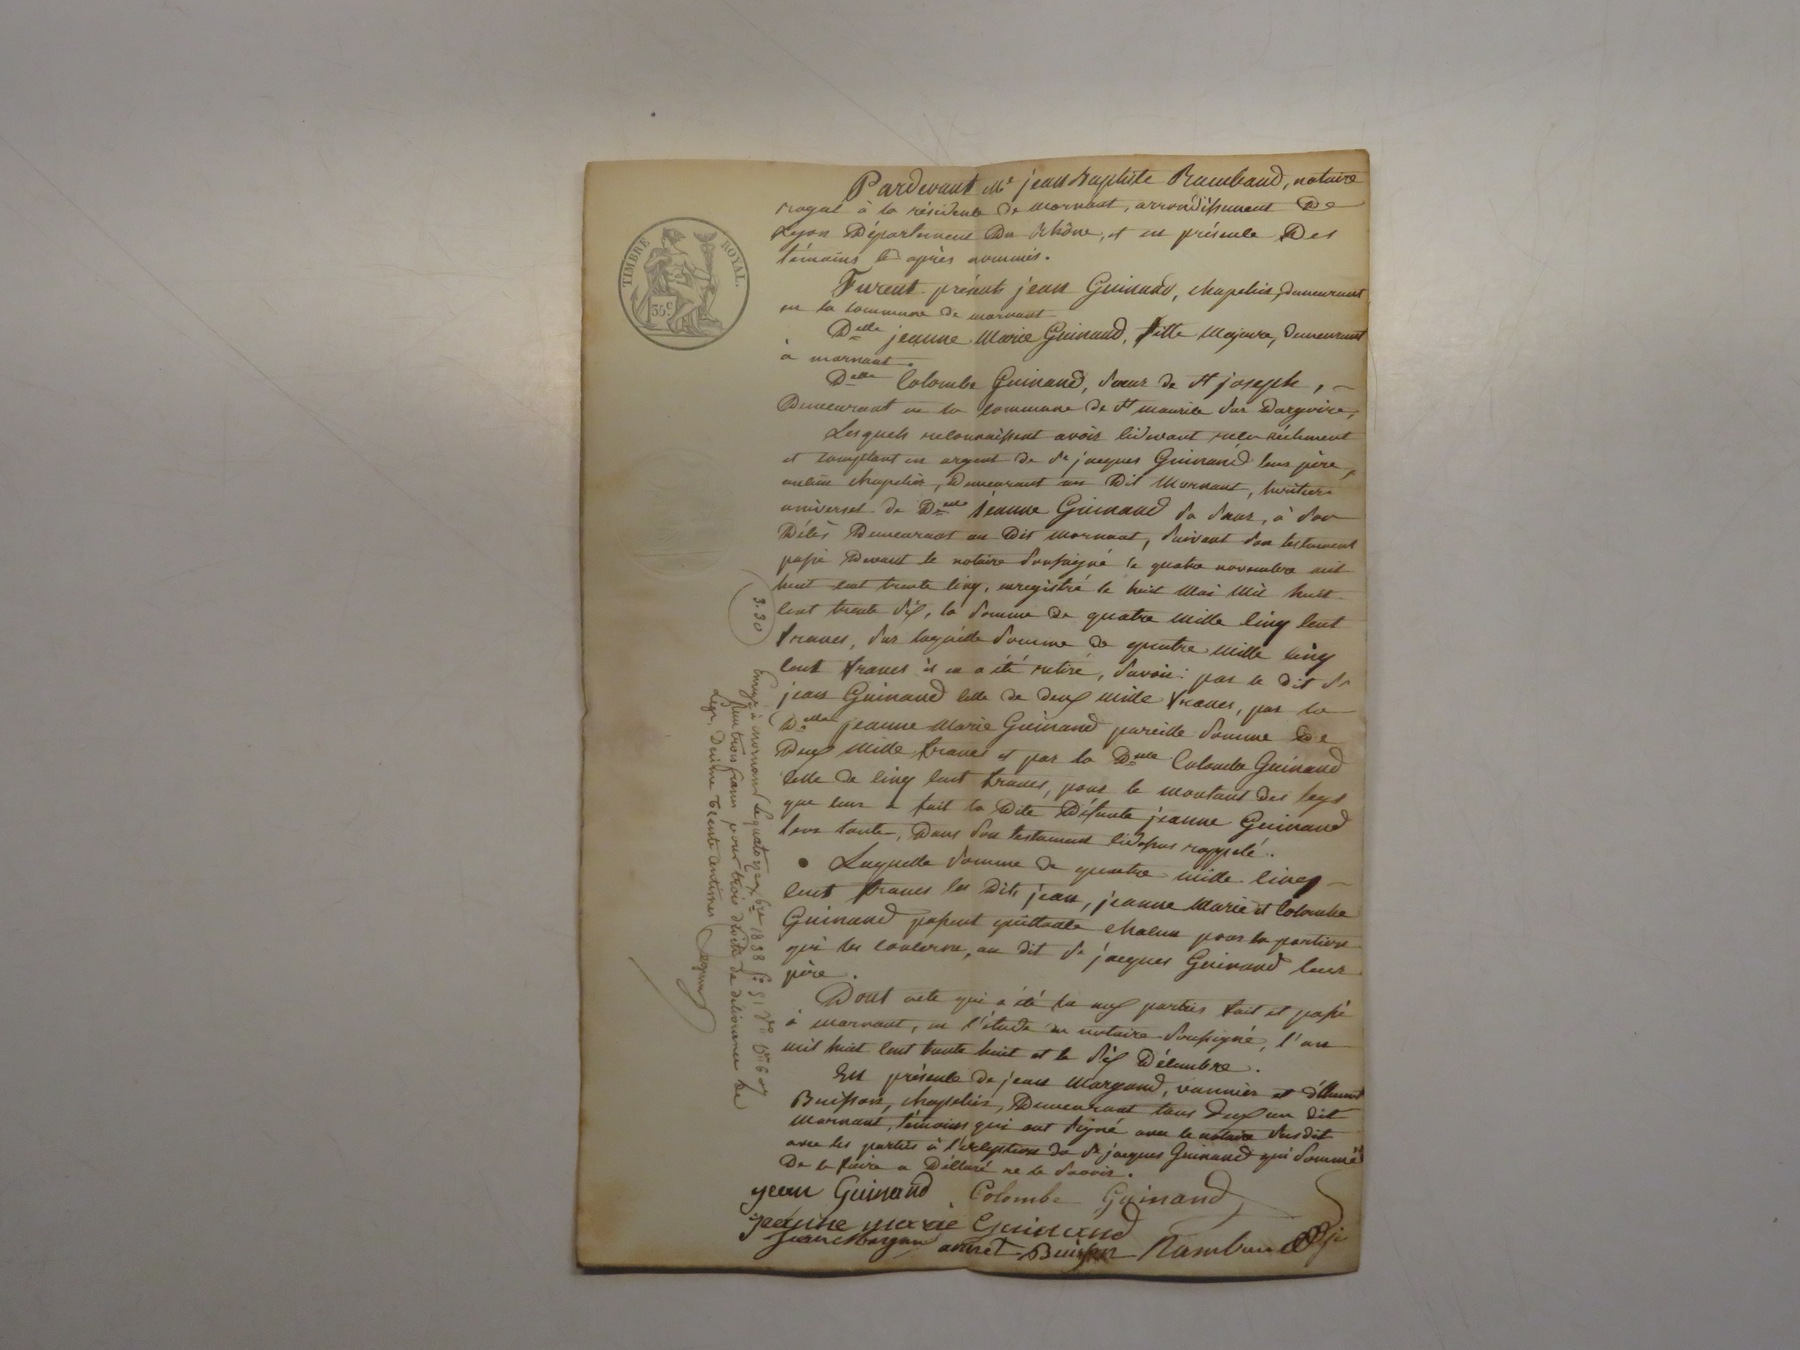 TIMBRE ROYAL.
35c
Pardevant Me jean Baptiste Rambaud, notaire
royal à la résidence de mornant, arrondissement De
Lyon Département Du Rhône, et en présence Des
témoins Ci après nommés.
Furent présents jean Guinand, chapelier, demeurant
en la commune de mornant
Delle jeanne Marie Guinand, fille Majeure, demeurant
à mornant.
Delle Colombe Guinand, Sœur de St joseph,
Demeurant en la commune de St maurice Sur Dargoire,
Lesquels reconnaissent avoir cidevant reçu réellement
et comptant en argent de Sr jacques Guinand leur père,
ancien chapelier, Demeurant au Dit Mornant, héritier
universel de Delle jeanne Guinand Sa Sœur, à Son
Décès Demeurant au Dit mornant, Suivant Son testament
passé Devant le notaire Soussigné le quatre novembre mil
huit cent trente cinq, enregistré le huit Mai Mil huit
cent trente Six, la Somme de quatre Mille Cinq Cent
francs, Sur laquelle Somme de quatre Mille Cinq
Cent francs il en a été retiré, Savoir: par le dit Sr
jean Guinand Celle de deux mille francs, par la
Delle jeanne Marie Guinand pareille Somme De
Deux Mille francs et par la Delle Colombe Guinand
Celle de Cinq Cent francs, pour le montant des legs
que leur a fait la Dite Défunte jeanne Guinand
leur tante, Dans Son testament Cidessus rappelé.
Laquelle Somme de quatre mille Cinq
Cent francs les Dits jean, jeanne Marie et Colombe
Guinand passent quittance chacun pour la portion
qui les concerne, au dit Sr jacques Guinand leur
père.
Dont acte qui a été lu aux parties fait et passé
à mornant, en l'étude du notaire Soussigné, l'an
mil huit Cent trente huit et le Six Décembre.
En présence de jean Margand, vannier et
Buisson, chapelier, Demeurant tous deux au dit
Mornant, témoins qui ont Signé avec le notaire Susdit
avec les parties à l'exception de Sr jacques Guinand qui Sommé
De le faire a Déclaré ne le Savoir.
jean Guinand Colombe Guinand
jeanne marie Guinand
Jean Margan Buisson Rambaud
3.30
Enregé à mornant le quatorze Xbre 1838 fo 51 Vo
reçu trois francs pour trois droits de délivrance de
Legs, Décime trente centimes